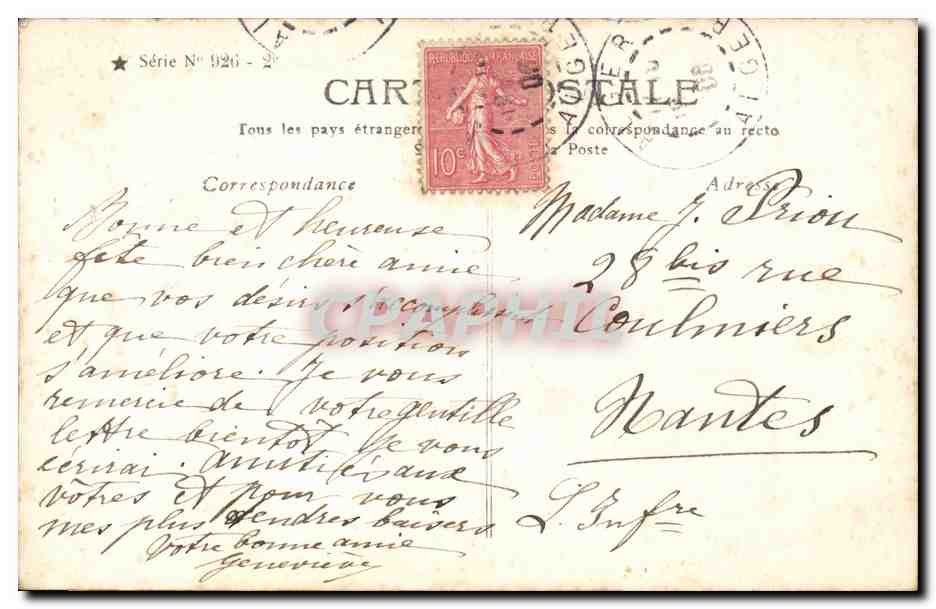 ★ Série Nº 926 - 2
CARTE POSTALE
Tous les pays étrangers la correspondance au recto
la Poste
REPUBLIQUE FRANÇAISE
10c
POSTES
ALGER
ALGER
Correspondance
Adresse
Bonne et heureuse
fête bien chère amie
que vos désirs s'accomplissent
et que votre position
s'améliore. Je vous
remercie de votre gentille
lettre bientôt je vous
écrirai. Amitiés aux
vôtres et pour vous
mes plus tendres baisers
Votre bonne amie
Geneviève
Madame J. Priou
28 bis rue
Coulmiers
Nantes
L. Infre
CPAPHIL